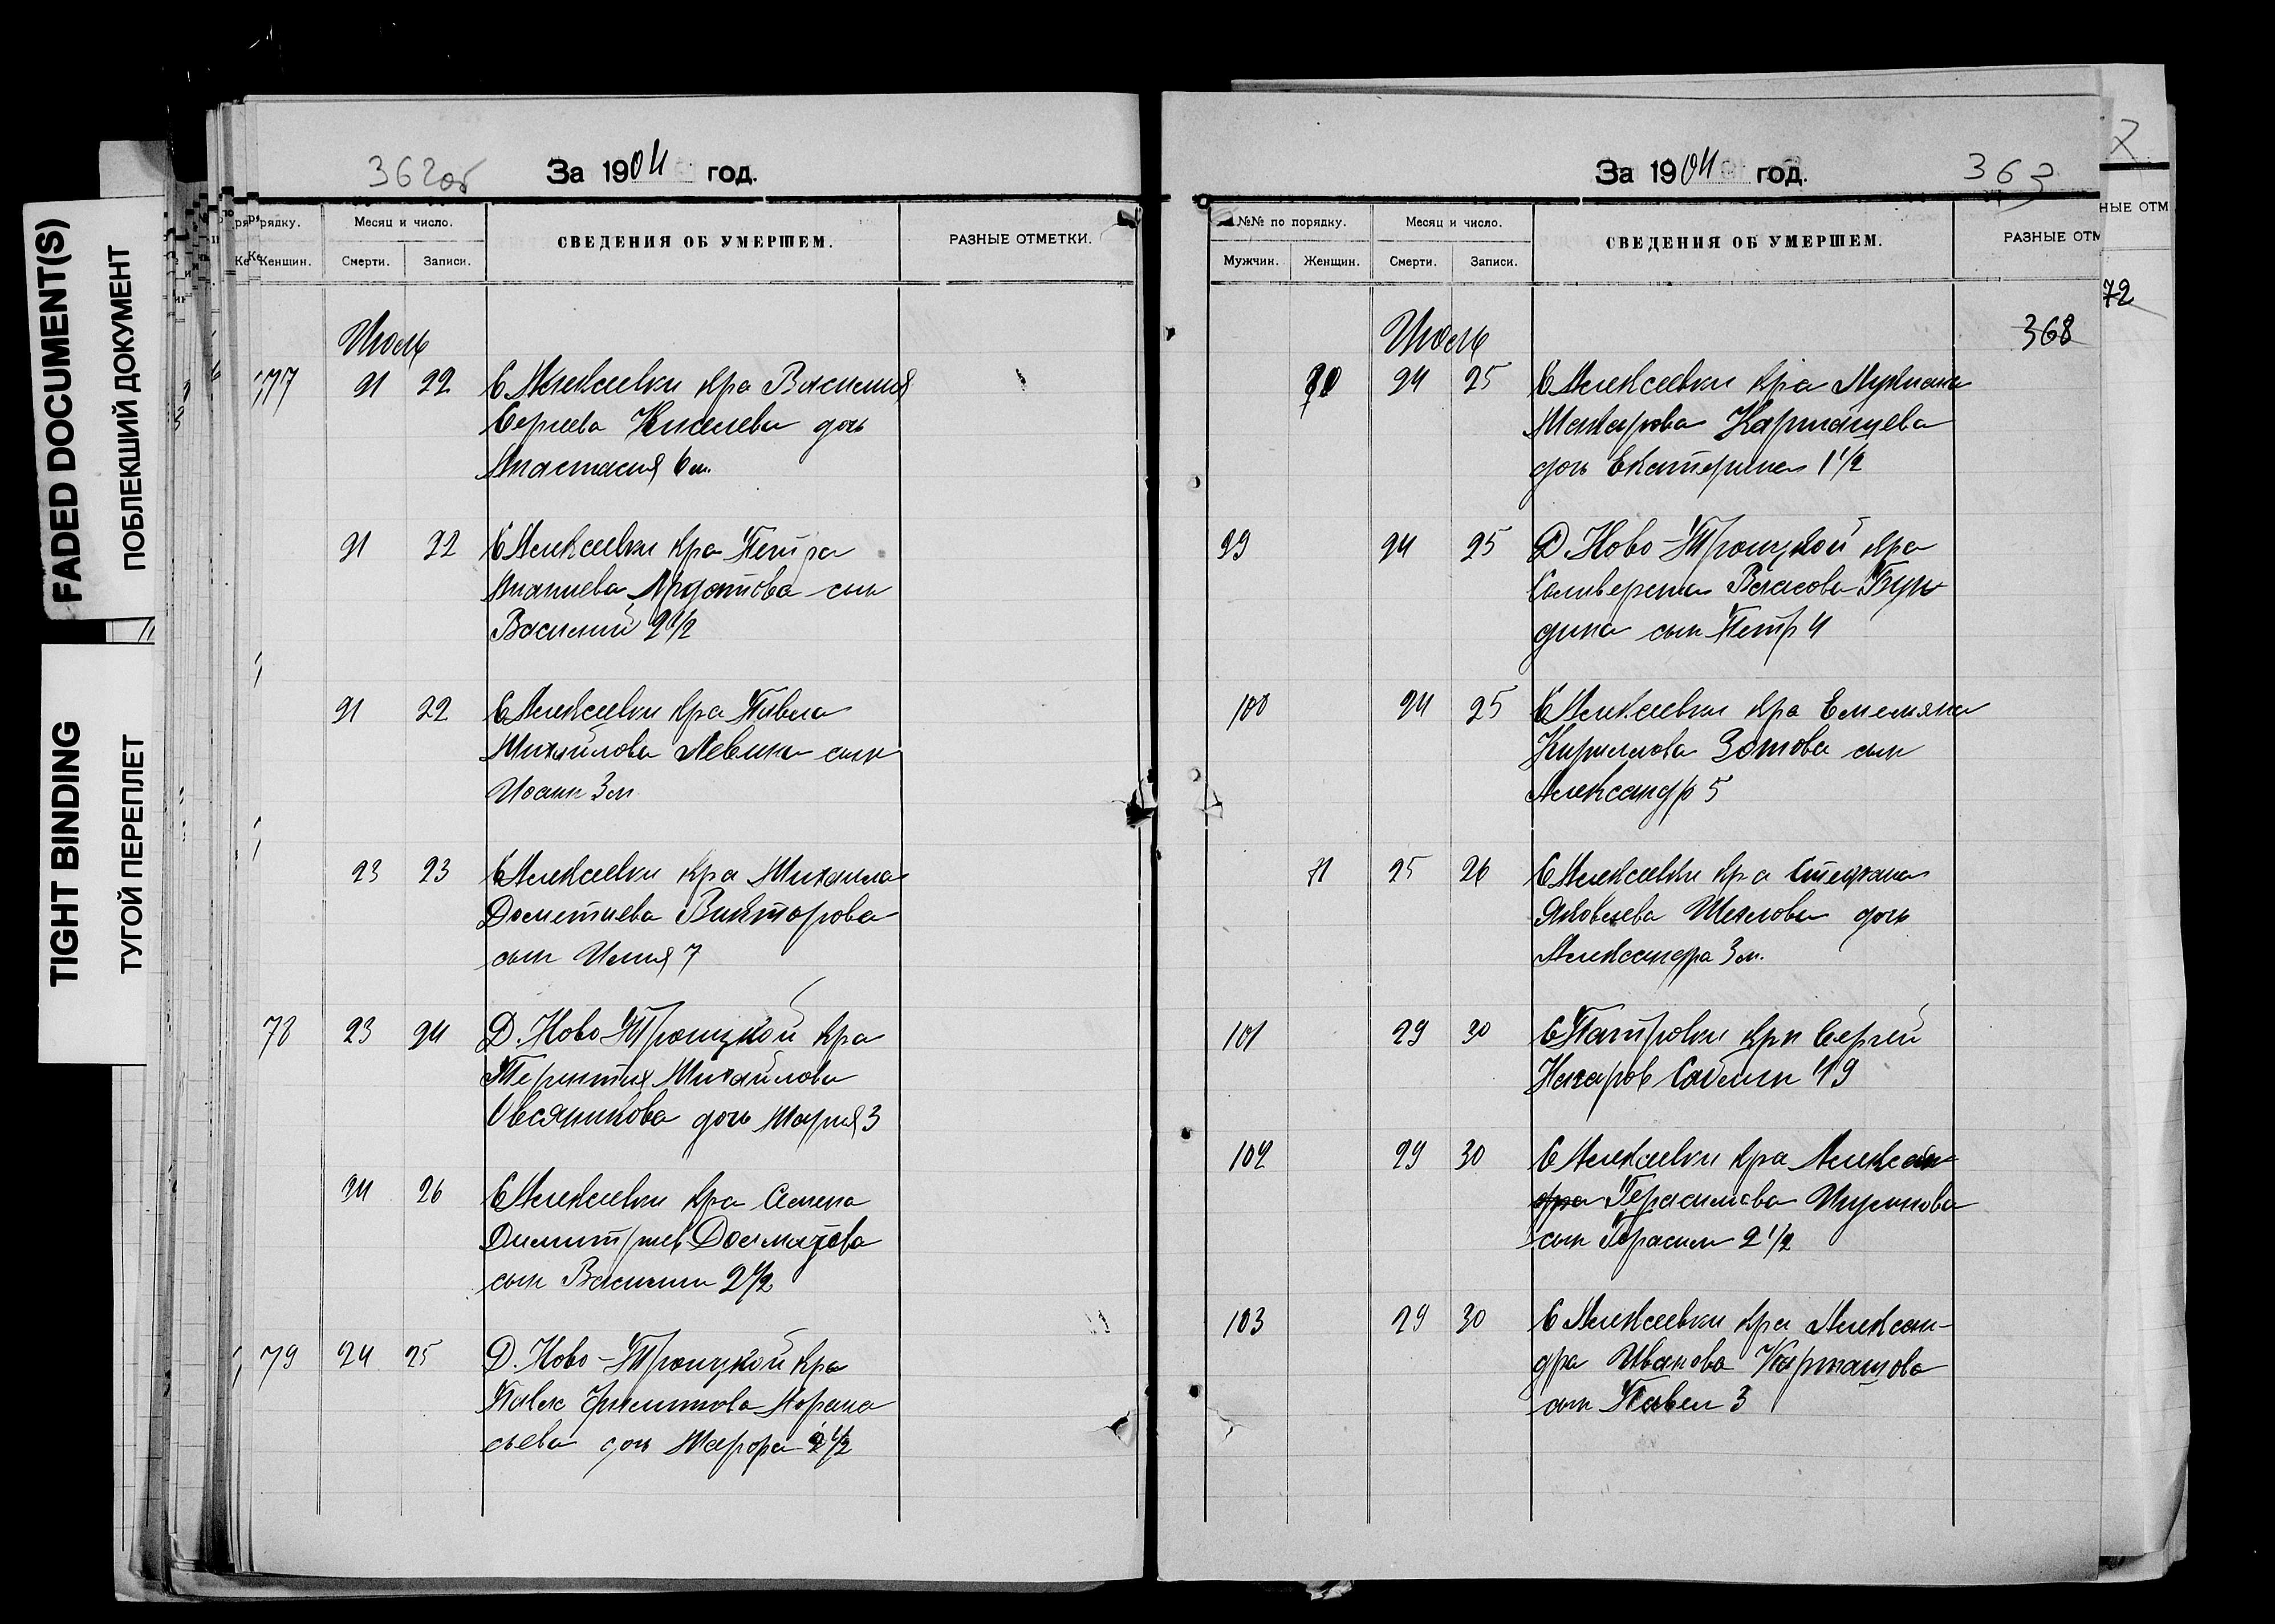 FADED DOCUMENT(S)
ПОБЛЕКШИЙ ДОКУМЕНТ
TIGHT BINDING
ТУГОЙ ПЕРЕПЛЕТ
362об
За 1904 год.
рядку.
Женщин.
Месяц и число.
Смерти.
Записи.
СВЕДЕНИЯ ОБ УМЕРШЕМ.
РАЗНЫЕ ОТМЕТКИ.
Июль
77 21 22 С Алексеевки кра Василия
Сергеева Киселева дочь
Анастасия 6 м.
21 22 С Алексеевки кра Петра
Ардатова сын
Василий 2 1/2
21 22 С Алексеевки кра Павла
Михайлова Левина сын
Иоанн 3 м
23 23 С Алексеевки кра Михаила
Дометиева Викторова
сын Илия 7
78 23 24 Д. Ново-Троицкой кра
Терентия Михайлова
Овсяникова дочь Мария 3
24 26 С Алексеевки кра Семена
Димитриев Долматова
сын Василий 2 1/2
79 24 25 Д. Ново-Троицкой кра
Павла Филиппова Афана
сьева дочь Марфа 2 1/2
За 1904 год.
363
№№ по порядку.
Мужчин.
Женщин.
Месяц и число.
Смерти.
Записи.
СВЕДЕНИЯ ОБ УМЕРШЕМ.
РАЗНЫЕ ОТМ
НЫЕ ОТМ
72
368
Июль
80 24 25 С Алексеевки кра Лукиана
Макарова Карташева
дочь Екатерина 1 1/2
99 24 25 Д. Ново-Троицкой кра
Селиверста Власова Бун
дина сын Петр 4
100 24 25 С Алексеевки кра Емельяна
Кириллова Зотова сын
Александр 5
71 25 26 С Алексеевки кра Стефана
Яковлева Щеглова дочь
Александра 3 м.
101 29 30 С Патровки крн Сергей
Назаров Саблин 49
102 29 30 С Алексеевки кра Алексан
дра Герасимова
сын Герасим 2 1/2
103 29 30 С Алексеевки кра Алексан-
дра Иванова Карташова
сын Павел 3